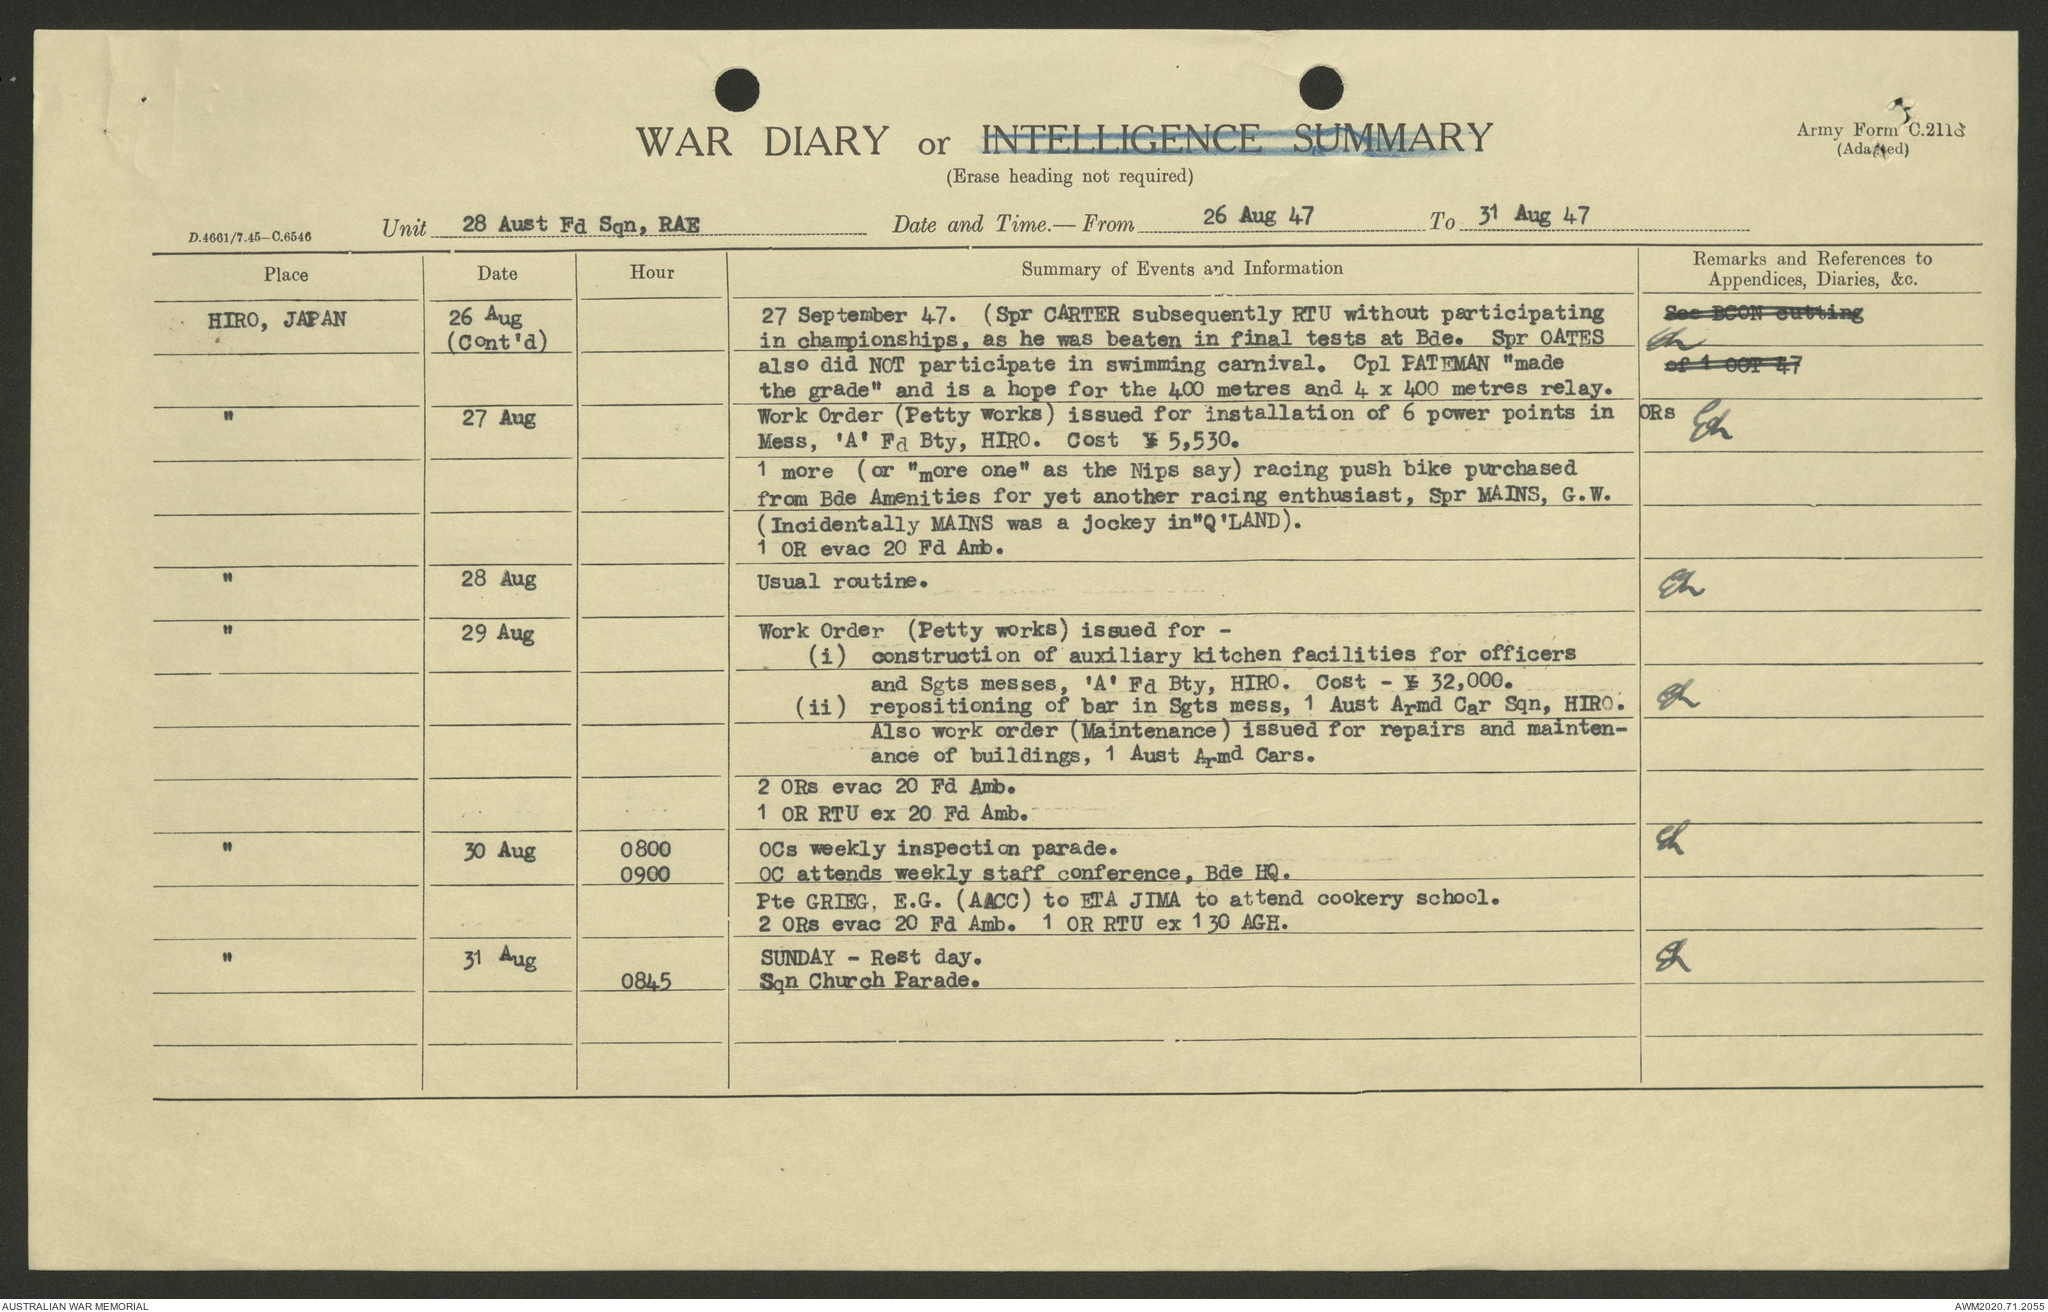 WAR DIARY or INTELLIGENCE SUMMARY
(Erase heading not required)
Army Form C.2118
(Adapted)
D.4661/7.45—C.6546
Unit 28 Aust Fd Sqn, RAE Date and Time.—From 26 Aug 47 To 31 Aug 47
Place Date Hour Summary of Events and Information Remarks and References to Appendices, Diaries, &c.
HIRO, JAPAN 26 Aug 27 September 47. (Spr CARTER subsequently RTU without participating See BCON cutting
(Cont'd) in championships, as he was beaten in final tests at Bde. Spr OATES
also did NOT participate in swimming carnival. Cpl PATEMAN "made of 1 OCT 47
the grade" and is a hope for the 400 metres and 4 x 400 metres relay.
" 27 Aug Work Order (Petty works) issued for installation of 6 power points in ORs
Mess, 'A' Fd Bty, HIRO. Cost ¥ 5,530.
1 more (or "more one" as the Nips say) racing push bike purchased
from Bde Amenities for yet another racing enthusiast, Spr MAINS, G.W.
(Incidentally MAINS was a jockey in"Q'LAND).
1 OR evac 20 Fd Amb.
" 28 Aug Usual routine.
" 29 Aug Work Order (Petty works) issued for -
(i) construction of auxiliary kitchen facilities for officers
and Sgts messes, 'A' Fd Bty, HIRO. Cost - ¥ 32,000.
(ii) repositioning of bar in Sgts mess, 1 Aust Armd Car Sqn, HIRO.
Also work order (Maintenance) issued for repairs and mainten-
ance of buildings, 1 Aust Armd Cars.
2 ORs evac 20 Fd Amb.
1 OR RTU ex 20 Fd Amb.
" 30 Aug 0800 OCs weekly inspection parade.
0900 OC attends weekly staff conference, Bde HQ.
Pte GRIEG, E.G. (AACC) to ETA JIMA to attend cookery school.
2 ORs evac 20 Fd Amb. 1 OR RTU ex 130 AGH.
" 31 Aug SUNDAY - Rest day.
0845 Sqn Church Parade.
AUSTRALIAN WAR MEMORIAL
AWM2020.71.2055